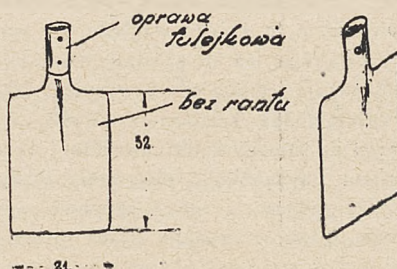 oprawa
tulejkowa
bez rantu
32
21